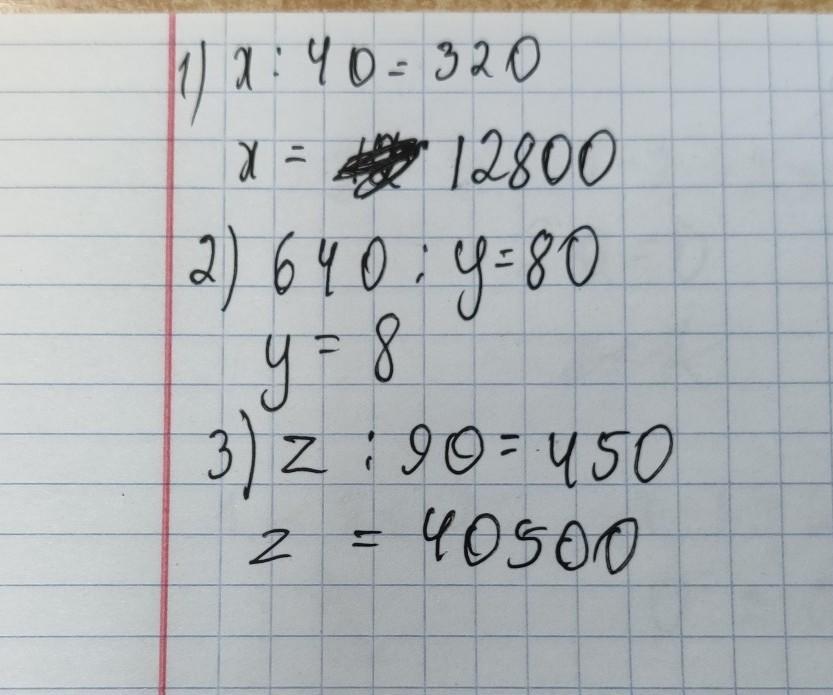 1) x : 40 = 320
x = 12800
2) 640 : y = 80
y = 8
3) z : 90 = 450
z = 40500